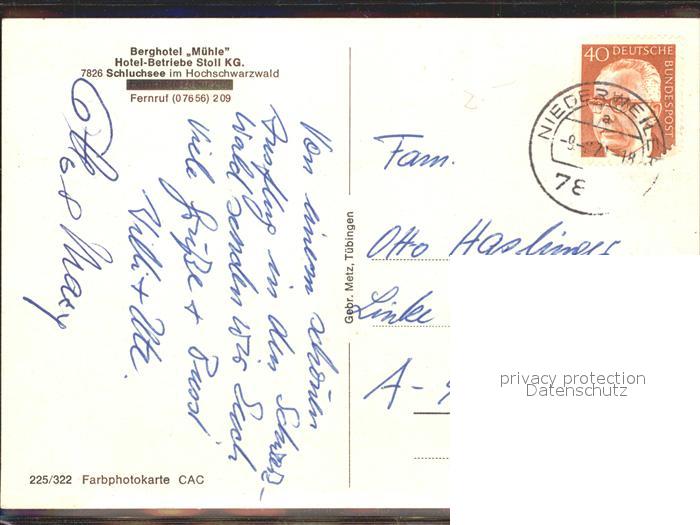 Berghotel „Mühle"
Hotel-Betriebe Stoll KG.
7826 Schluchsee im Hochschwarzwald
Fernruf (07656) 209
Von einem schönen
Ausflug in den Schwarz-
wald senden wir Euch
viele Grüße + Bussi
Willi + Ute.
Otto & Mary
225/322 Farbphotokarte CAC
Gebr. Metz, Tübingen
40 DEUTSCHE
BUNDESPOST
78
Fam.
Otto Haslinger
Linke
A-
privacy protection
Datenschutz